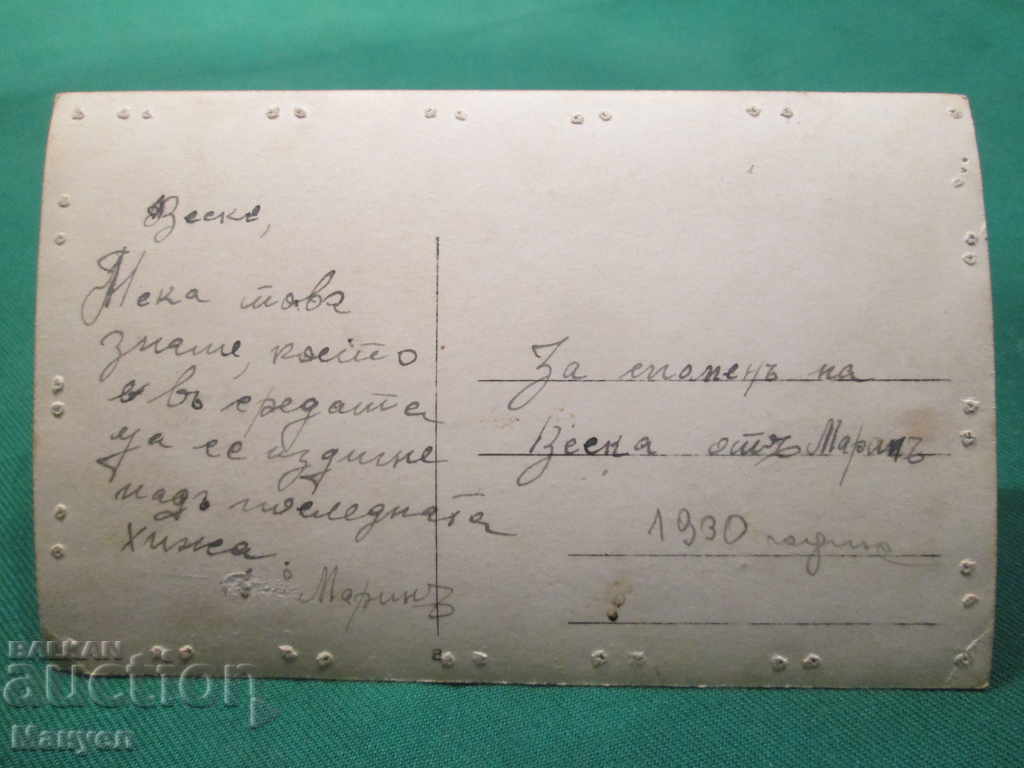 Веске,
Нека това
знаме, което
е въ средата
да се издигне
надъ последната
хижа.
Маринъ
За споменъ на
Веска отъ Маринъ
1930 година
BALKAN
auction
Manyen